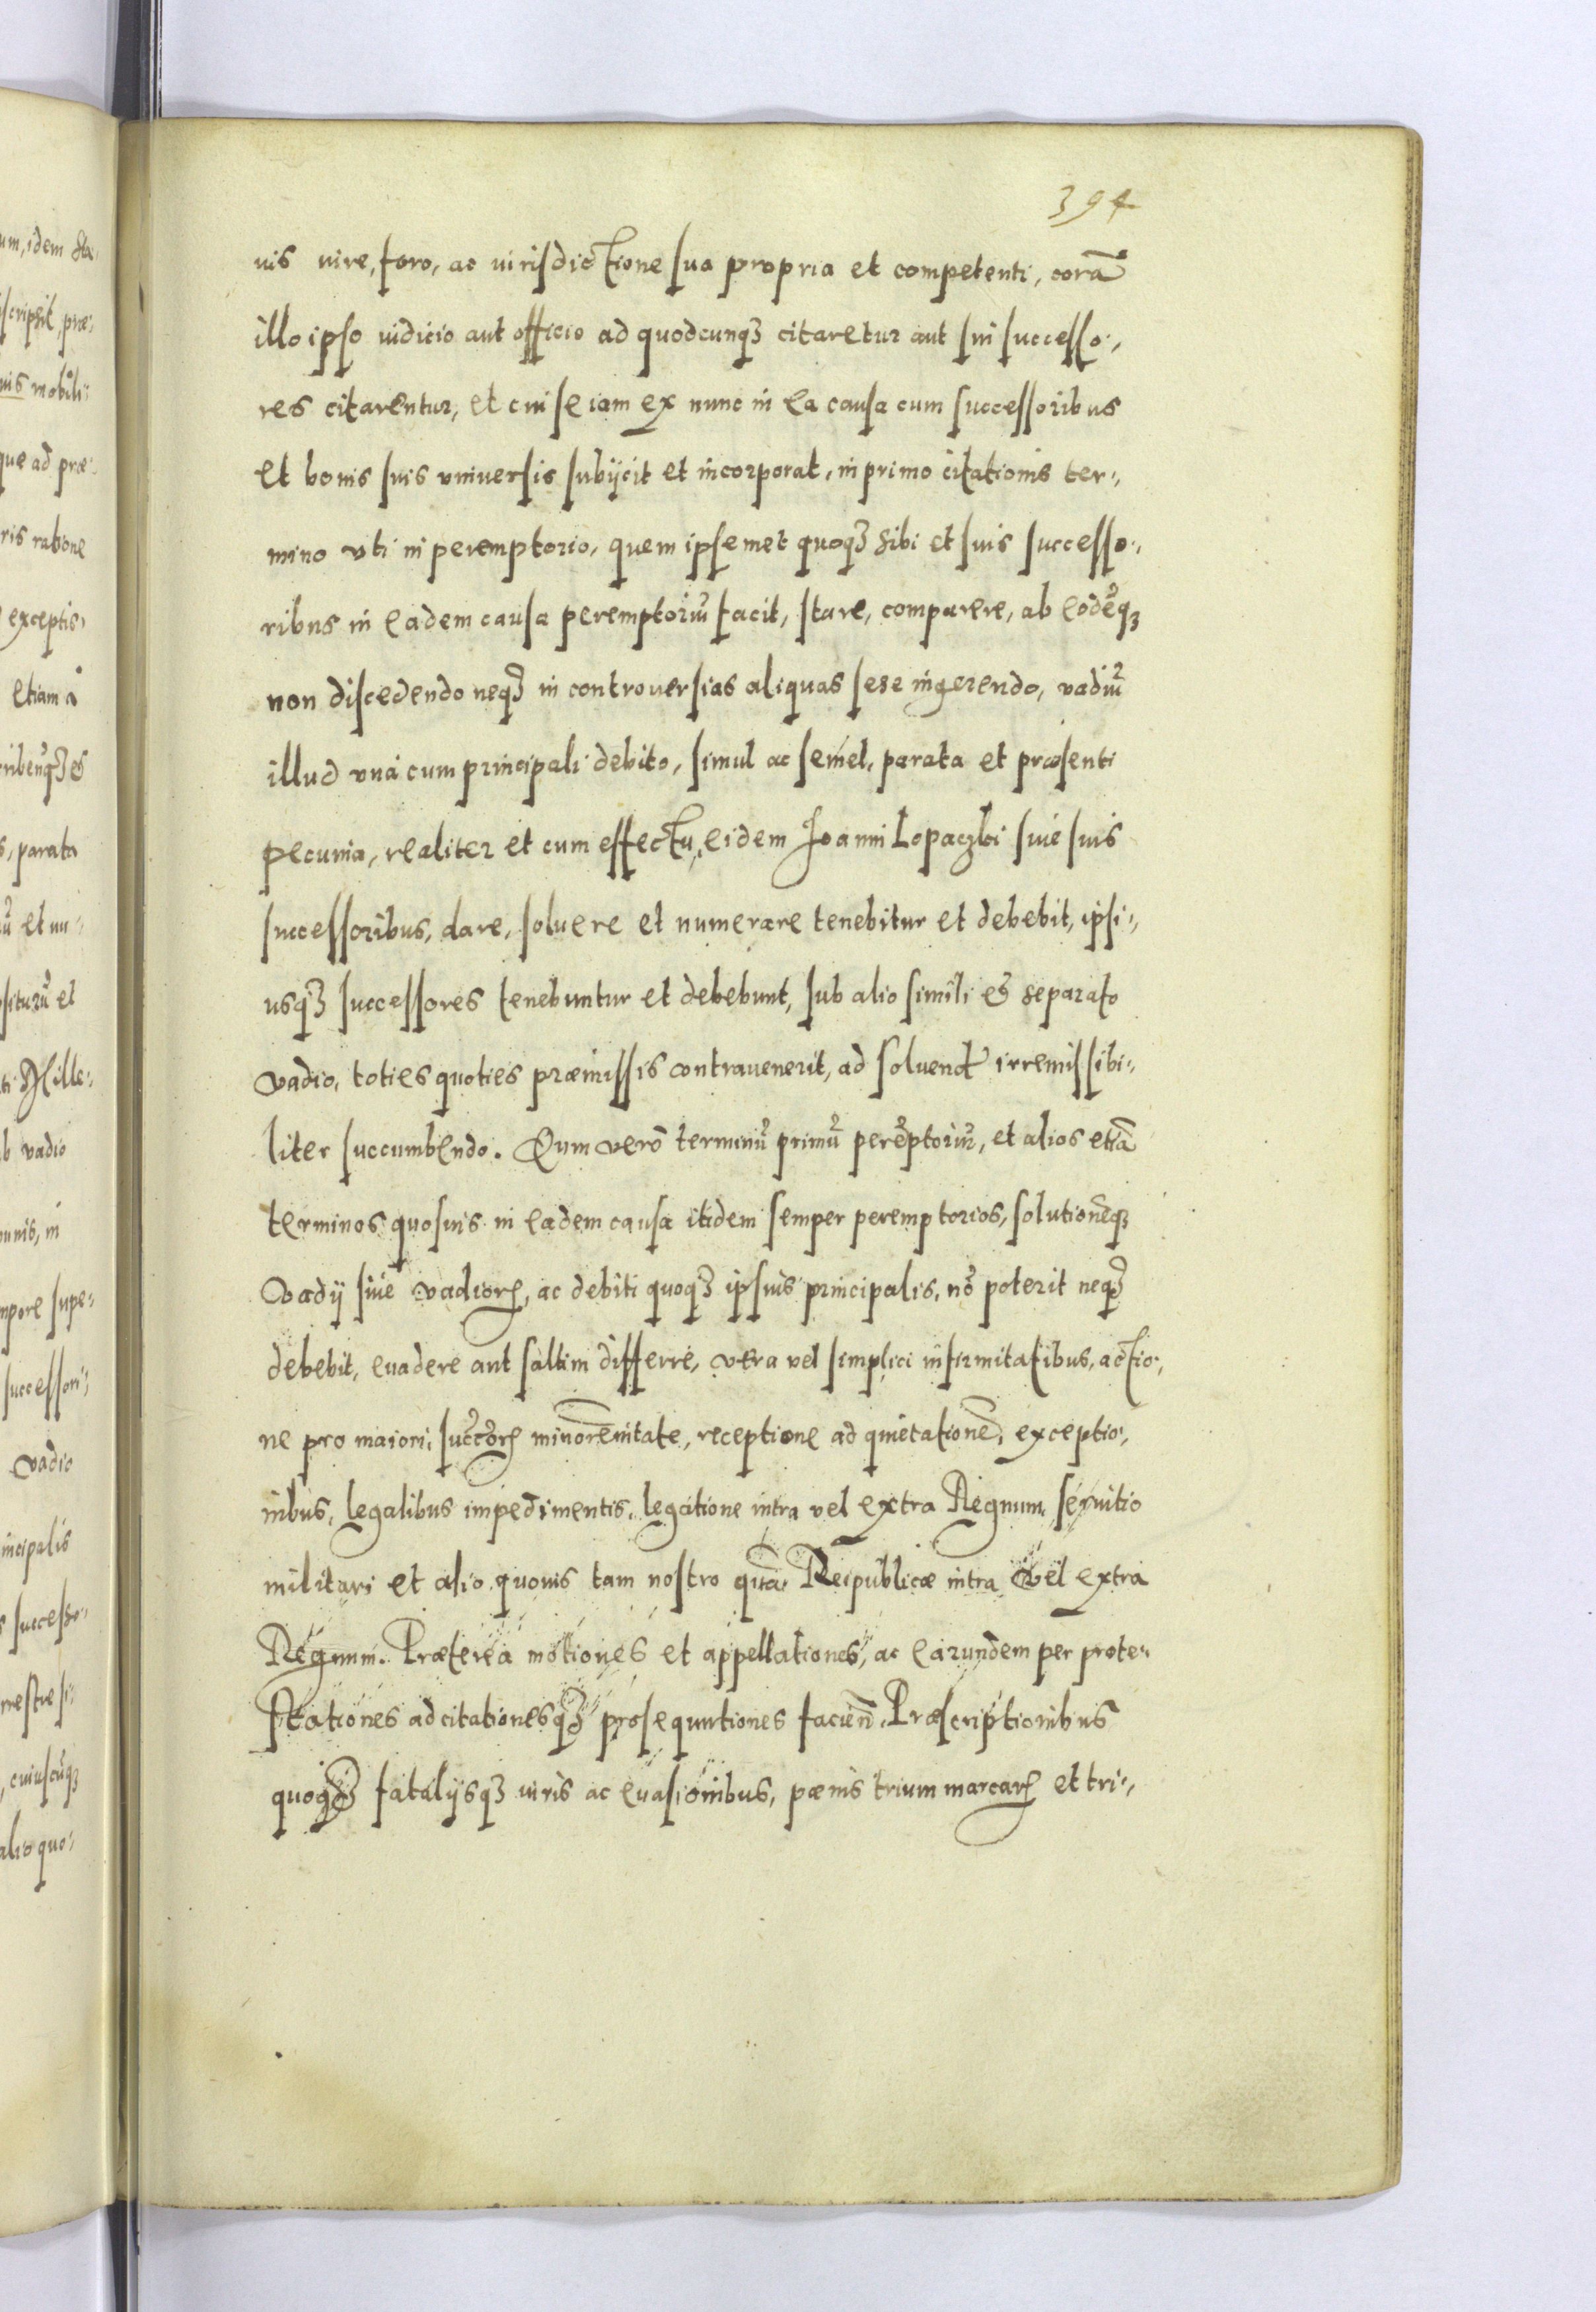 394
uis iure, foro, ac iurisdictione sua propria et competenti, corā
illo ipso iudicio aut officio ad quodcunqꝫ citaretur aut sui successo-,
res citarentur, et cui se iam ex nunc in ea causa cum successoribus
et bonis suis vniuersis subijcit et incorporat, in primo citationis ter-,
mino vti in peremptorio, quem ipsemet quoqꝫ sibi et suis successo-,
ribus in eadem causa peremptoriū facit, stare, comparere, ab eodēqꝫ
non discedendo neqꝫ in controuersias aliquas sese ingerendo, vadiū
illud vnà cum principali debito, simul ac semel, parata et præsenti
pecunia, realiter et cum effectu, eidem Joanni Lopaczki siue suis
successoribus, dare, soluere et numerare tenebitur et debebit, ipsi-,
usqꝫ successores tenebuntur et debebunt, sub alio simili et separato
vadio, toties quoties præmissis contrauenerit, ad soluend irremissibi-,
liter succumbendo. Qum verò terminū primū perēptoriū, et alios etiā
terminos quosuis in eadem causa itidem semper peremptorios, solutionēqꝫ
vadij siue vadioꝝ, ac debiti quoqꝫ ipsius principalis, nō poterit neqꝫ
debebit, euadere aut saltim differre, vera vel simplici infirmitatibus, actio-,
ne pro maiori, succ̄oꝝ minorēnitate, receptione ad quietationē, exceptio-,
nibus, legalibus impedimentis, legatione intra vel extra Regnum, seruitio
militari et alio quouis tam nostro quā Reipublicæ intra vel extra
Regnum. Præterea motiones et appellationes, ac earundem per prote-
stationes ad citationesqꝫ prosequutiones facien̄. Præscriptionibus
quoqꝫ fatalijsqꝫ iuris ac euasionibus, pænis trium marcaꝝ et tri-,